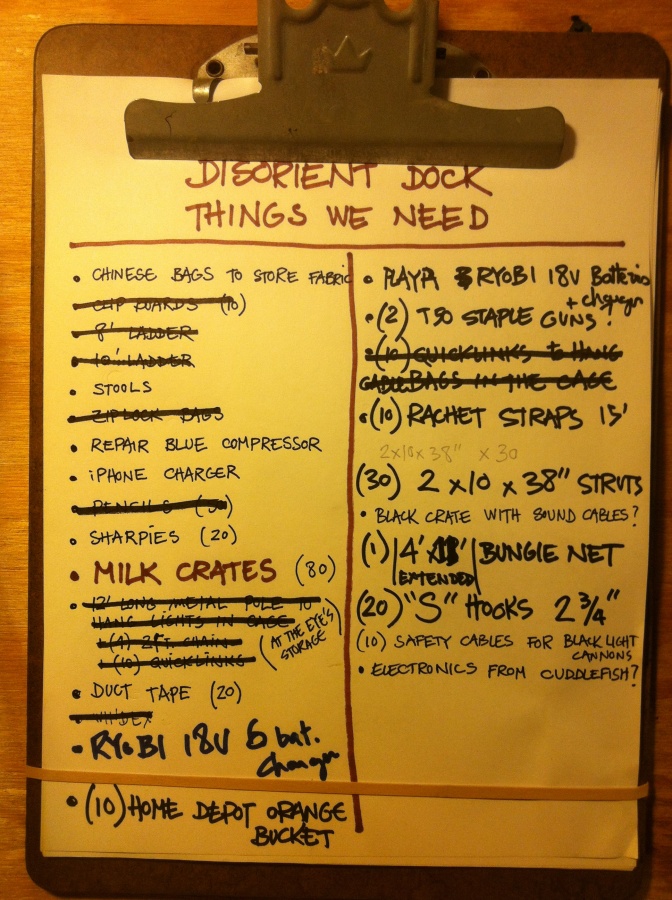 DISORIENT DOCK
THINGS WE NEED
• CHINESE BAGS TO STORE FABRIC
• CLIP BOARDS (10)
• 8' LADDER
• 10' LADDER
• STOOLS
• ZIPLOCK BAGS
• REPAIR BLUE COMPRESSOR
• iPHONE CHARGER
• PENCILS
• SHARPIES (20)
• MILK CRATES (80)
• 12' LONG METAL POLE TO
HANG LIGHTS IN CAGE
(4) 2FT. CHAIN
(10) QUICKLINKS
(AT THE EYE'S
STORAGE)
• DUCT TAPE (20)
• WINDEX
• RYOBI 18V 6 bat.
Charger
• (10) HOME DEPOT ORANGE
BUCKET
• PLAYA RYOBI 18V Batteries
+ charger
• (2) T50 STAPLE GUNS.
• (10) QUICKLINKS to HANG
BAGS IN THE CAGE
• (10) RACHET STRAPS 15'
2x10x38" x 30
(30) 2 x10 x 38" STRUTS
• BLACK CRATE WITH SOUND CABLES?
(1) 4' BUNGIE NET
EXTENDED
(20) "S" HOOKS 2 3/4"
(10) SAFETY CABLES FOR BLACKLIGHT
CANNONS
• ELECTRONICS FROM CUDDLEFISH?